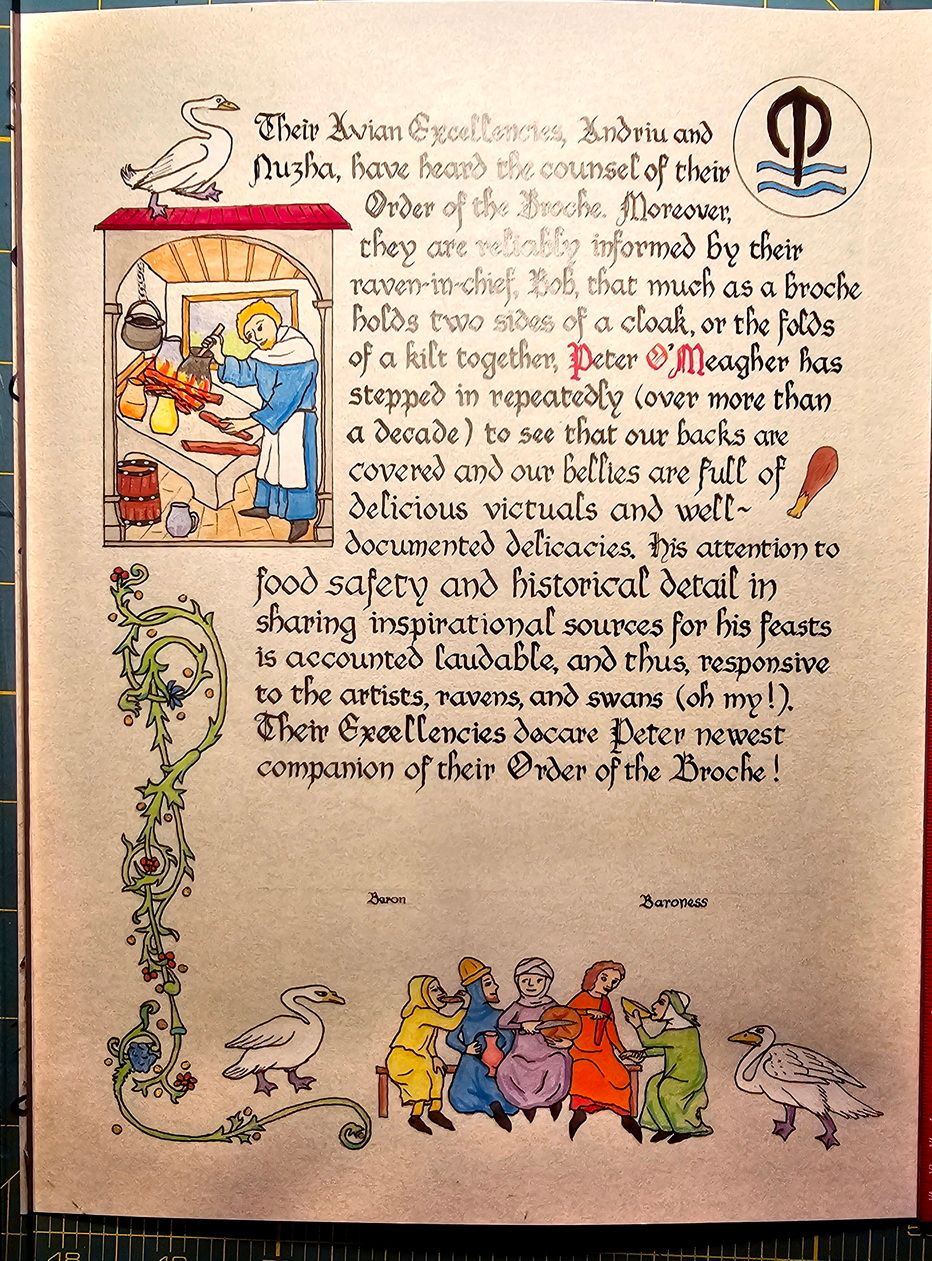 Their Avian Excellencies, Andriu and
Nuzha, have heard the counsel of their
Order of the Broche. Moreover,
they are reliably informed by their
raven-in-chief, Bob, that much as a broche
holds two sides of a cloak, or the folds
of a kilt together, Peter O'Meagher has
stepped in repeatedly (over more than
a decade) to see that our backs are
covered and our bellies are full of
delicious victuals and well~
documented delicacies. His attention to
food safety and historical detail in
sharing inspirational sources for his feasts
is accounted laudable, and thus, responsive
to the artists, ravens, and swans (oh my!).
Their Excellencies decare Peter newest
companion of their Order of the Broche!
Baron Baroness